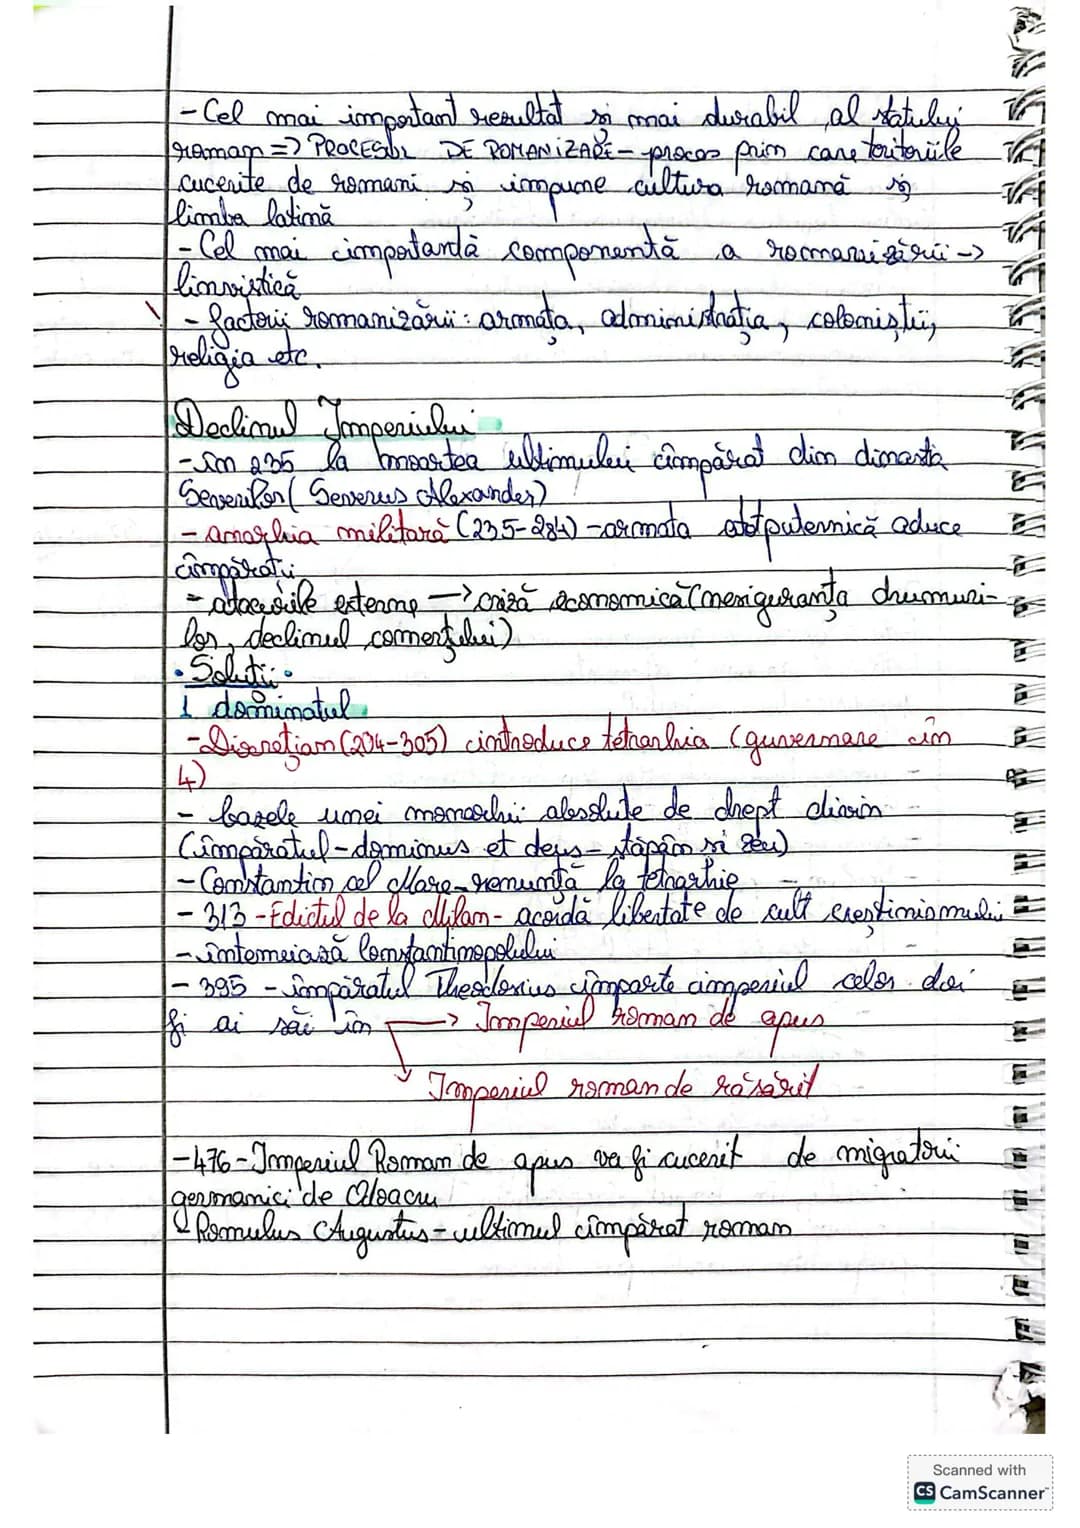 - Cel mai important rezultat și mai durabil al statului
roman => PROCESUL DE ROMANIZARE - proces prin care teritoriile
cucerite de romani își impune cultura romană și
limba latină
- Cel mai importantă componentă a romanizării ->
lingvistică
- factorii romanizării: armata, administrația, coloniștii,
religia etc.
Declinul Imperiului
- în 235 la moartea ultimului împărat din dinastia
Severilor (Severus Alexander)
- anarhia militară (235-284) - armata atotputernică aduce
împărații
- atacurile externe -> criză economică (nesiguranța drumuri-
lor, declinul comerțului)
• Soluții:
1 dominatul
- Dioclețian (204-305) introduce tetrarhia (guvernare în
4)
- bazele unei monarhii absolute de drept divin
(împăratul - dominus et deus - stăpân și zeu)
- Constantin cel Mare - renunță la tetrarhie
- 313 - Edictul de la Milan - acordă libertate de cult creștinismului
- întemeiază Constantinopolului
- 395 - împăratul Theodosius împarte imperiul celor doi
fi ai săi în -> Imperiul roman de apus
Imperiul roman de răsărit
- 476 - Imperiul Roman de apus va fi cucerit de migratorii
germanici de Odoacru
Romulus Augustus - ultimul împărat roman
Scanned with
CS CamScanner